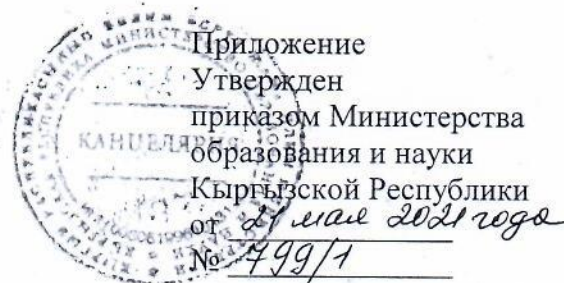 Приложение
Утвержден
приказом Министерства
образования и науки
Кыргызской Республики
от 21 мая 2021 года
№ 799/1
КАНЦЕЛЯРИЯ